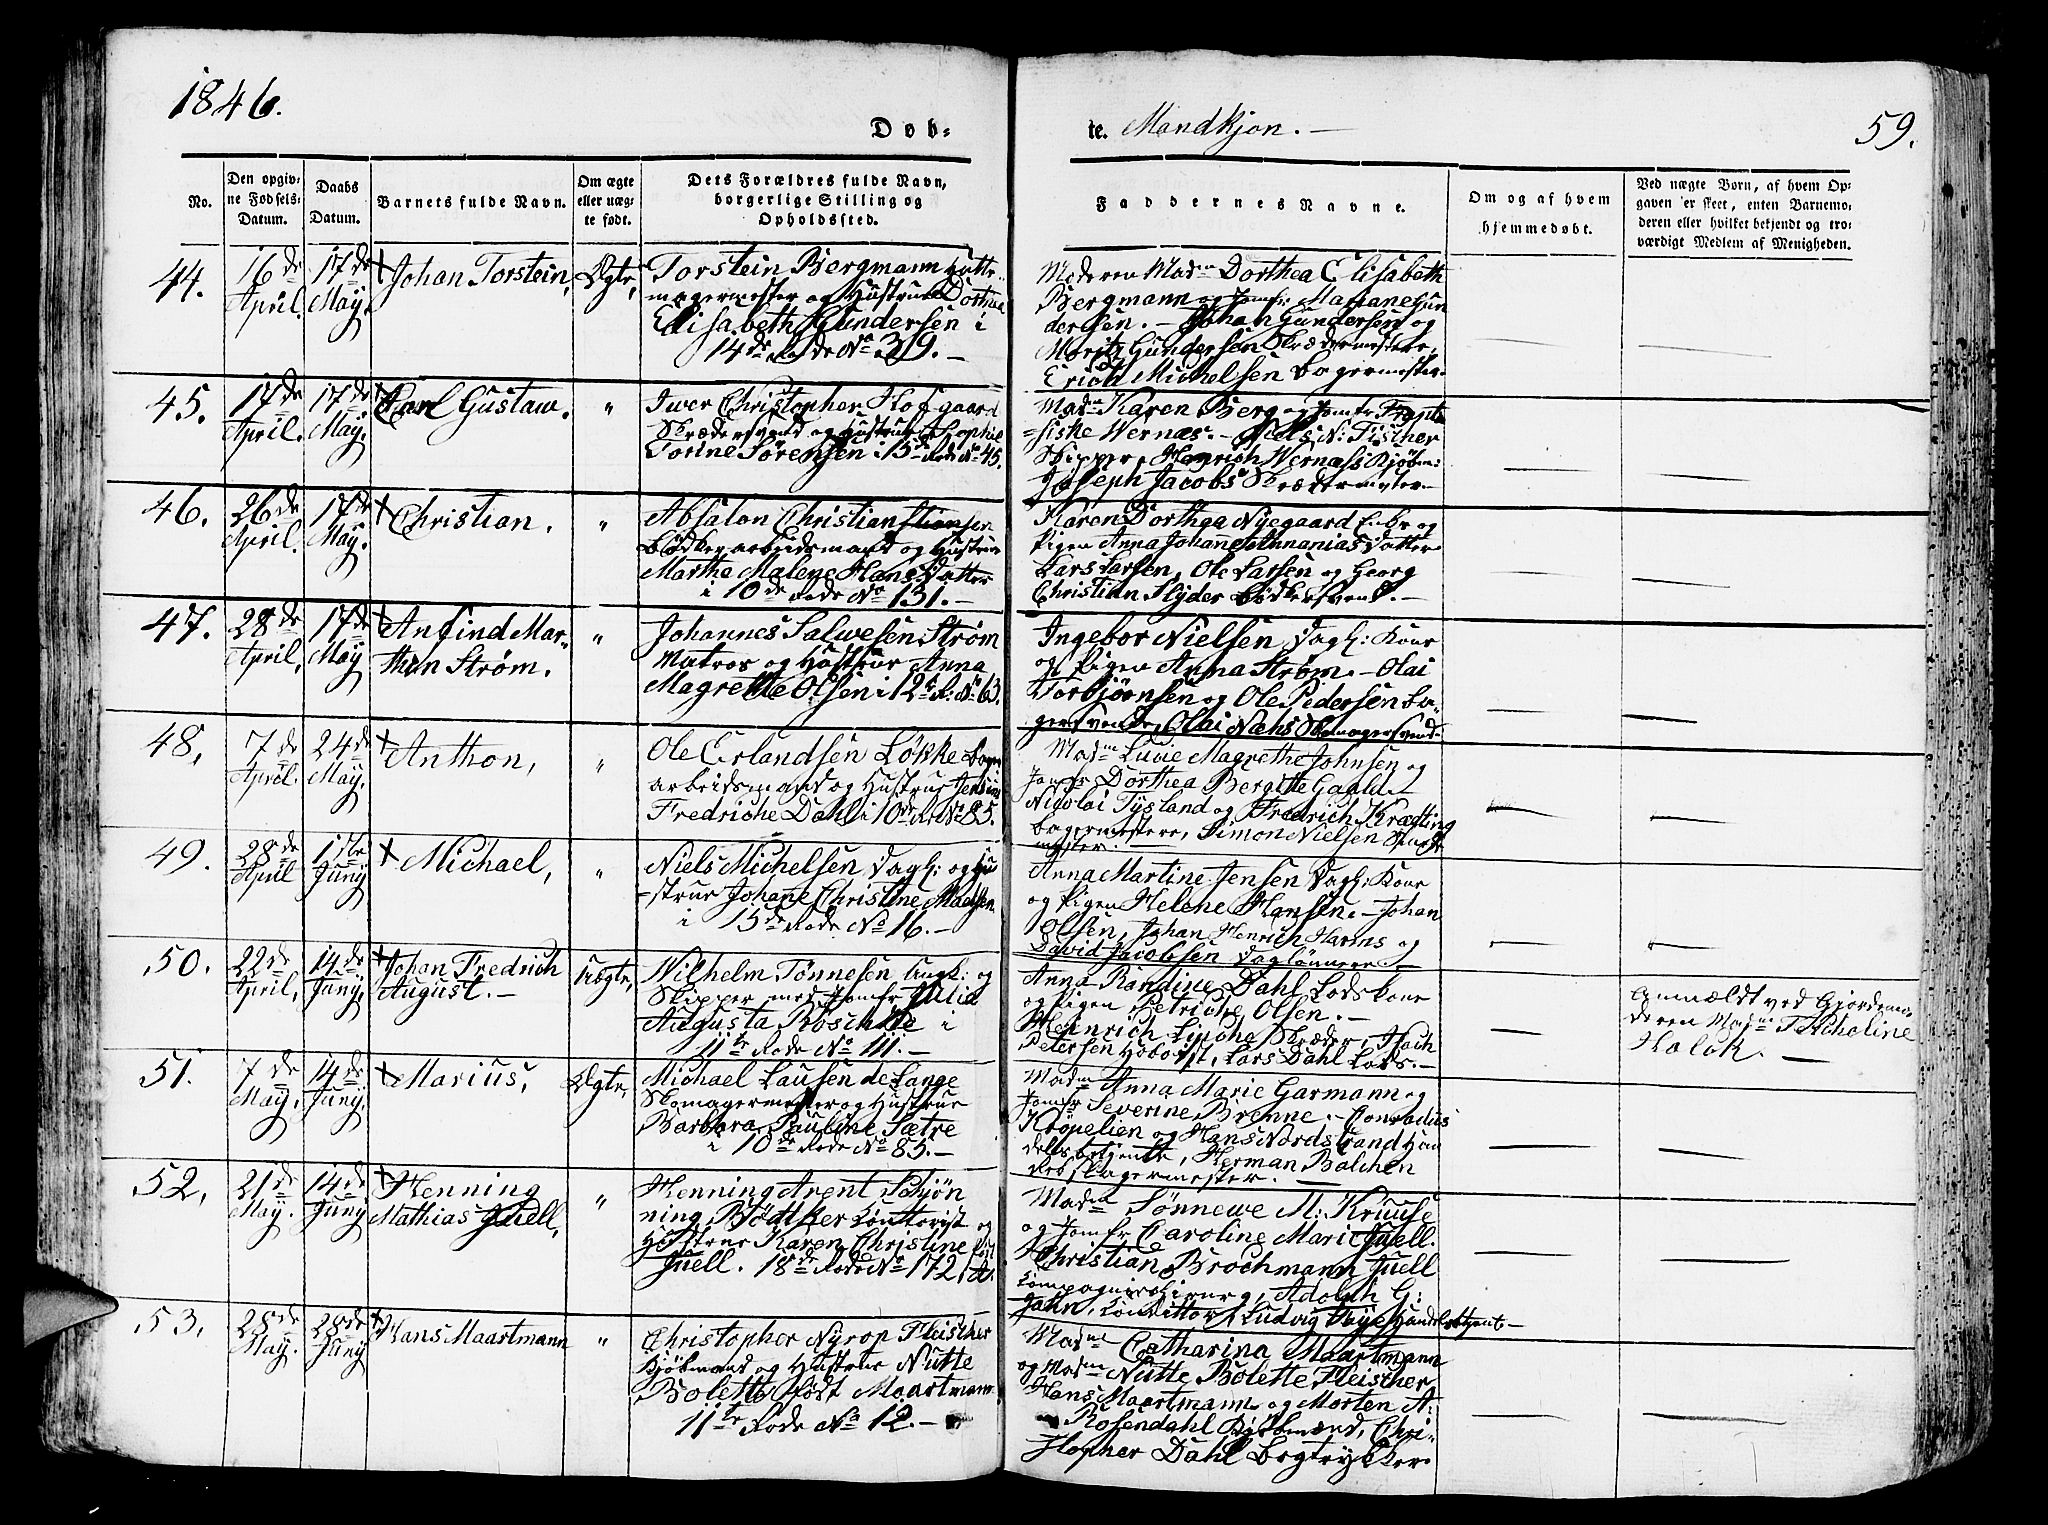 1846.
Døb-
te. Mandkjøn. —
59.
No.
Den opgiv-
ne Fødsels-
Datum.
Daabs
Datum.
Barnets fulde Navn.
Om ægte
eller uæg-
te født.
Dets Forældres fulde Navn,
borgerlige Stilling og
Opholdssted.
Faddernes Navne.
Om og af hvem
hjemmedøbt.
Ved uægte Børn, af hvem Op-
gaven er skeet, enten Barnemo-
deren eller hvilket bekjendt og tro-
værdigt Medlem af Menigheden.
44.
16de
April.
17de
May.
Johan Torstein,
Ægte,
Torstein Bergmann Hatte-
magermester og Hustrue Dorthea
Elisabeth Gundersen i
14de Rode No 319. —
Moderen Madme Dorthea Elisabeth
Bergmann og Jomfr Mariane Gun
dersen. — Johan Gundersen og
Moritz Gundersen Skrædermestere,
Erich Michelsen Bagermester.
45.
17de
April.
17de
May.
Carl Gustaw.
"
Iwer Christopher Hofgaard
Skrædersvend og Hustrue Sophie
Torine Sørensen i 15de Rode No 45.
Madme Karen Berg og Jomfr Frants
=siske Wernæs. — Niels N: Fischer
Skipper, Henrich Wernæss Kjøbm:
Joseph Jacobs Skrædermester
46.
26de
April.
17de
May.
Christian.
"
Absalon Christian Stiansen
Bødker arbeidsmand og Hustrue
Marthe Malene Hans Datter
i 10de Rode No 131. —
Karen Dorthea Nyegaard Enke og
Pigen Anna Johanne Annanias Datter
Lars Larsen, Ole Larsen og Georg
Christian Slyder Bødkersvend. —
47.
28de
April,
17de
May
Anfind Mar-
thin Strøm.
"
Johannes Salwesen Strøm
Matros og Hustrue Anna
Magrethe Olsen i 12te R. No 63.
Ingebor Nielsen Dagl: Kone
og Pigen Anna Strøm. — Olai
Torbjørnsen og Ole Pedersen Ba-
gersvende, Olai Næhs Skomagersvend
48,
7de
April.
24de
May.
Anthon,
"
Ole Erlandsen Løkke
arbeidsmand og Hustrue
Fredriche Dahl i 10de R. No 85.
Madme Luvie Magrethe Johnsen og
Jomfr Dorthea Bergitte Gaald.
Nicolai Tysland og Fredrich Krætting
bagermestere, Simon Nielsen
mester. —
49.
28de
April
1ste
Juny
Michael,
"
Niels Michelsen Dagl: og Hu
-strue Johane Christine Madsen
i 15de Rode No 16. —
Anna Martine Jensen Dagl: Kone
og Pigen Helene Hansen. — Johan
Olsen, Johan Henrich Harms og
David Jacobsen Daglønnere —
50.
22de
April,
14de
Juny,
Johan Fredrich
August. —
Uægte,
Wilhelm Tønnesen Ungk: og
Skipper med Jomfr Julia
Augusta Røschitte i
11te Rode No 111. —
Anna Randine Dahl Lodskone
og Pigen Petriche Olsen. —
Hennrich Lipche Skræder,
Petersen, Lars Dahl Lods. —
Anmældt ved Gjordemo-
deren Madme T. Acholine
Holck. —
51.
7de
May,
14de
Juny.
Marius,
Ægte,
Michael Lausen de Lange
Skomagermester og Hustrue
Barbara Pauline Sætre
i 10de Rode No 85. —
Madme Anna Marie Garmann og
Jomfr Severine Brenne. — Conradus
Krøpelien og Hans Nordstrand Han
delsbetjente, Herman Balchen
Rebslagermester. —
52,
21de
May.
14de
Juny
Henning
Mathias Juell,
"
Henning Arent Schjøn
ning Bødtker Conttorist og
Hustrue Karen Christine født
Juell. 18de Rode No 172, A.
Madme Sønnewe M: Kruuse
og Jomfr Caroline Marie Juell.
Christian Brochmann Juell
Compagniechirurg, Adolph G:
Jahn, Conditter, Ludvig Faye Handelsbetjent —
53,
28de
May.
28de
Juny
Hans Maartmann
"
Christopher Nyrop Fleischer
Kjøbmand og Hustrue Nutte
Bolette født Maartmann
11te Rode No 12. —
Madme Catharina Maartmann
og Madme Nutte Bolette Fleischer
Hans Maartmann og Morten A:
Rosendahl Kjøbmænd, Chri-
stopher Dahl Bogtrykker.